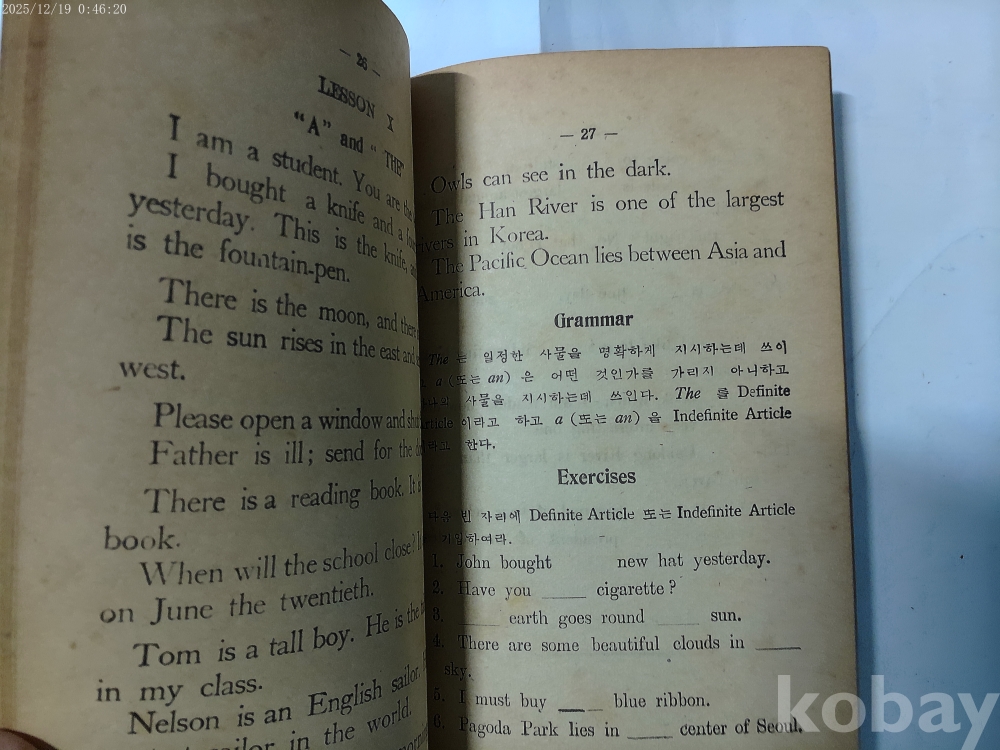 2025/12/19 0:46:20
— 26 —
LESSON X
"A" and "THE"
I am a student. You are the
I bought a knife and a
yesterday. This is the knife,
is the fountain-pen.
There is the moon, and
The sun rises in the east and
west.
Please open a window and
Father is ill; send for the
There is a reading book. It
book.
When will the school close?
on June the twentieth.
Tom is a tall boy. He is the
in my class.
Nelson is an English sailor.
sailor in the world.
— 27 —
Owls can see in the dark.
The Han River is one of the largest
in Korea.
The Pacific Ocean lies between Asia and
America.
Grammar
The 는 일정한 사물을 명확하게 지시하는데 쓰이
a (또는 an) 은 어떤 것인가를 가리지 아니하고
사물을 지시하는데 쓰인다. The 를 Definite
Article 이라고 하고 a (또는 an) 을 Indefinite Article
한다.
Exercises
빈 자리에 Definite Article 또는 Indefinite Article
기입하여라.
1. John bought new hat yesterday.
2. Have you ____ cigarette?
3. ____ earth goes round ____ sun.
4. There are some beautiful clouds in ____
sky.
5. I must buy ____ blue ribbon.
6. Pagoda Park lies in ____ center of Seoul.
kobay